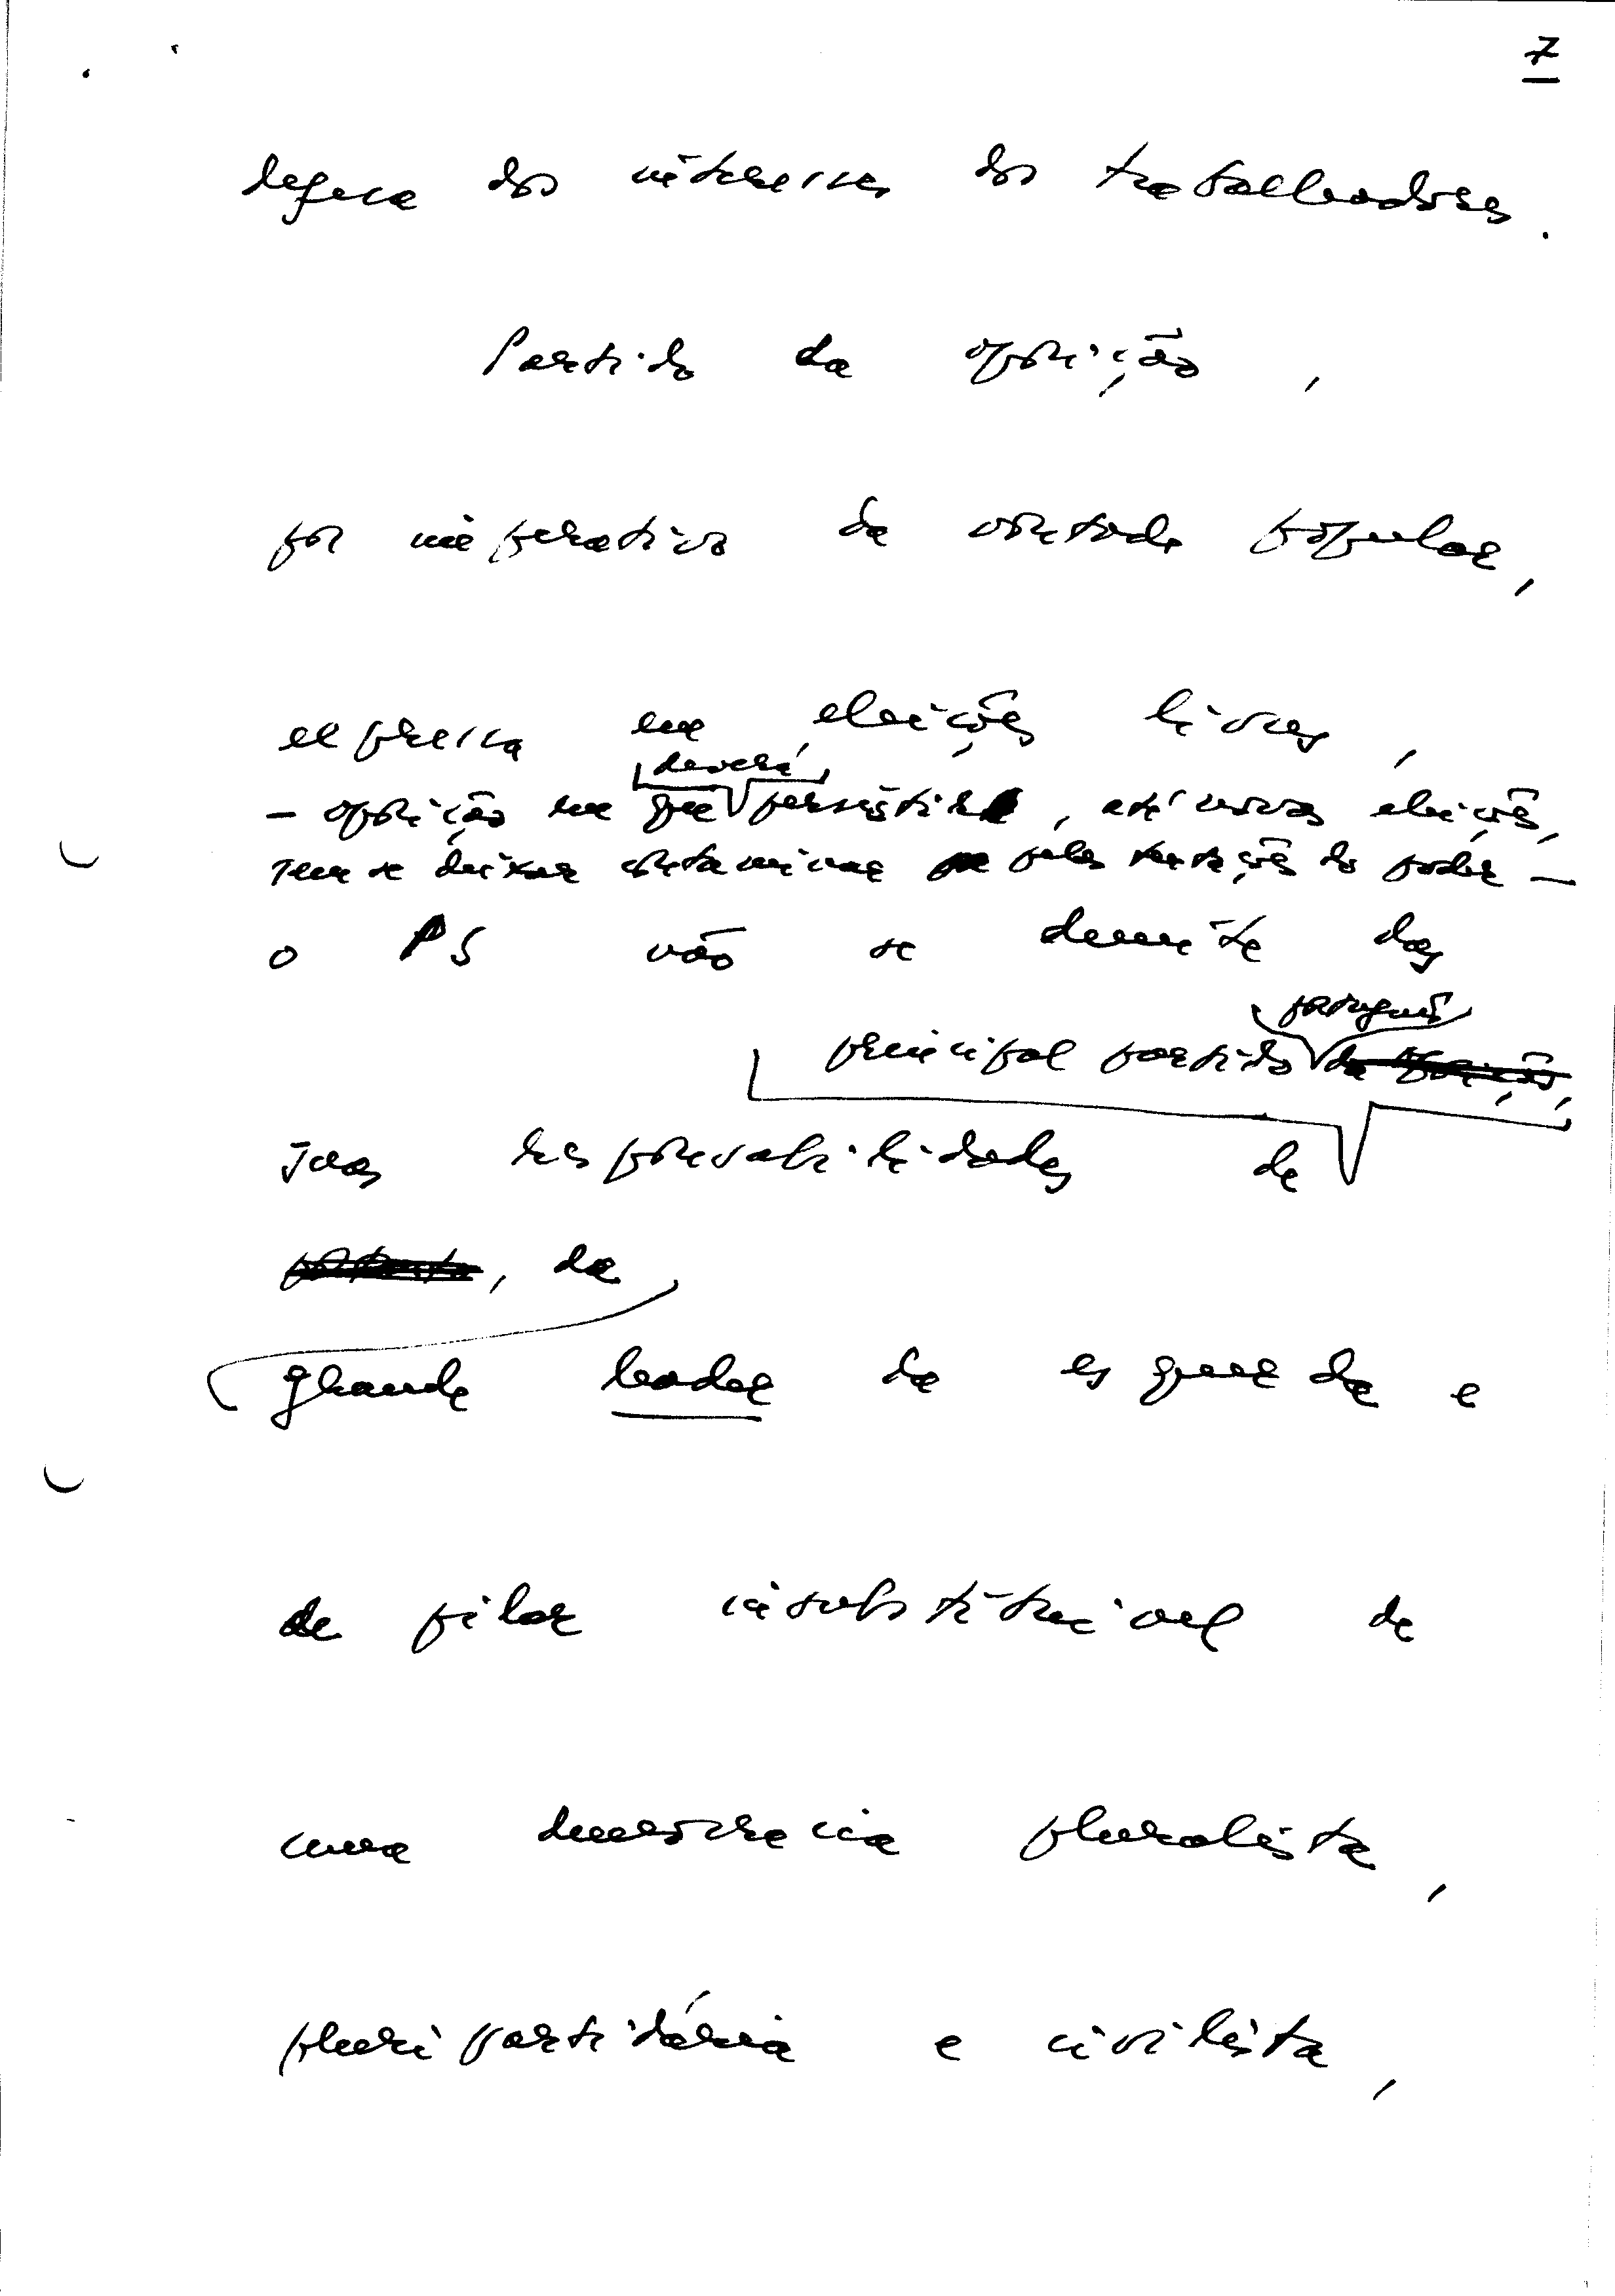 7
defesa dos interesses dos trabalhadores.
Partido da oposição,
por imperativo da vontade popular,
expressa em eleições livres,
deverá
– oposição em que persistir, até novas eleições,
sem se deixar contaminar pelas tentações do poder –
o PS não se demite das
português
principal partido da oposição,
suas responsabilidades de
, de
grande leader da esquerda e
de pilar insubstituível de
uma democracia pluralista,
pluripartidária e civilista,